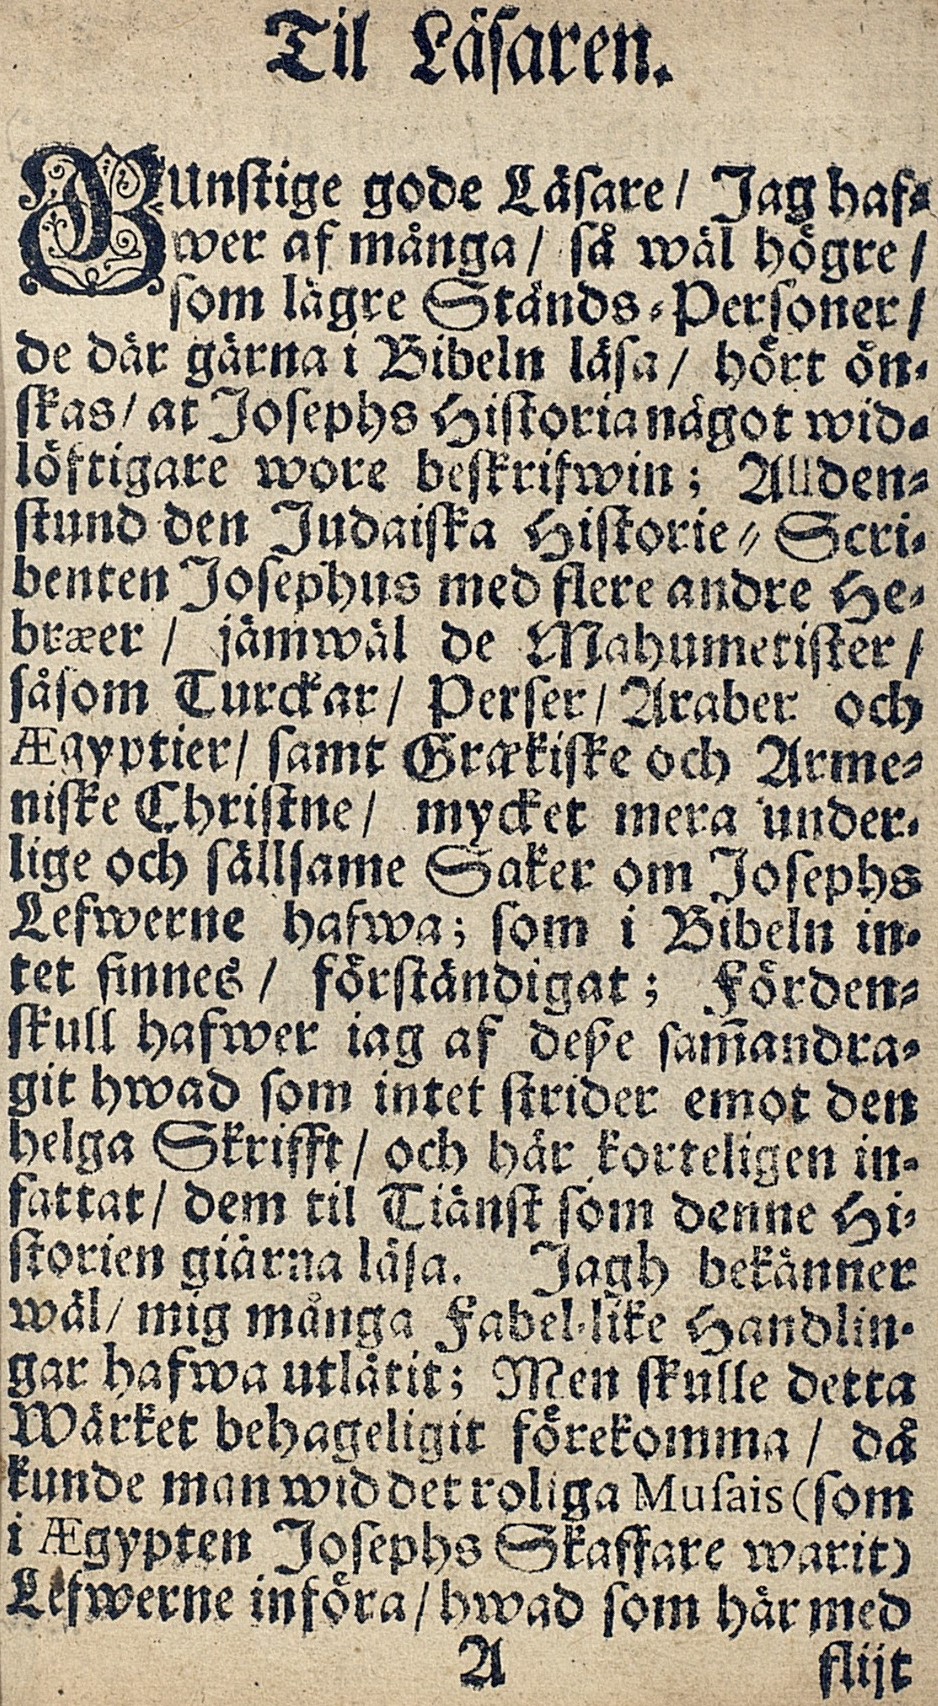 Til Läsaren.
GUnstige gode Läsare / Jag haf-
wer af många / så wäl högre /
som lägre Stånds-Personer /
de där gärna i Bibeln läsa / hört ön-
skas / at Josephs Historia något wid-
löftigare wore beskrifwin; Allden-
stund den Judaiska Historie-Scri-
benten Josephus med flere andre He-
bræer / jämwäl de Mahumetister /
såsom Turckar / Perser / Araber och
Ægyptier / samt Grækiske och Arme-
niske Christne / mycket mera under-
lige och sällsame Saker om Josephs
Lefwerne hafwa; som i Bibeln in-
tet finnes / förständigat; Förden-
skull hafwer iag af deße sam̄andra-
git hwad som intet strider emot den
helga Skrifft / och här korteligen in-
fattat / dem til Tiänst som denne Hi-
storien giärna läsa. Jagh bekänner
wäl / mig många Fabel-like Handlin-
gar hafwa utlåtit; Men skulle detta
Wärket behageligit förekomma / då
kunde man wid det roliga Musais (som
i Ægypten Josephs Skaffare warit)
Lefwerne införa / hwad som här med
A flijt